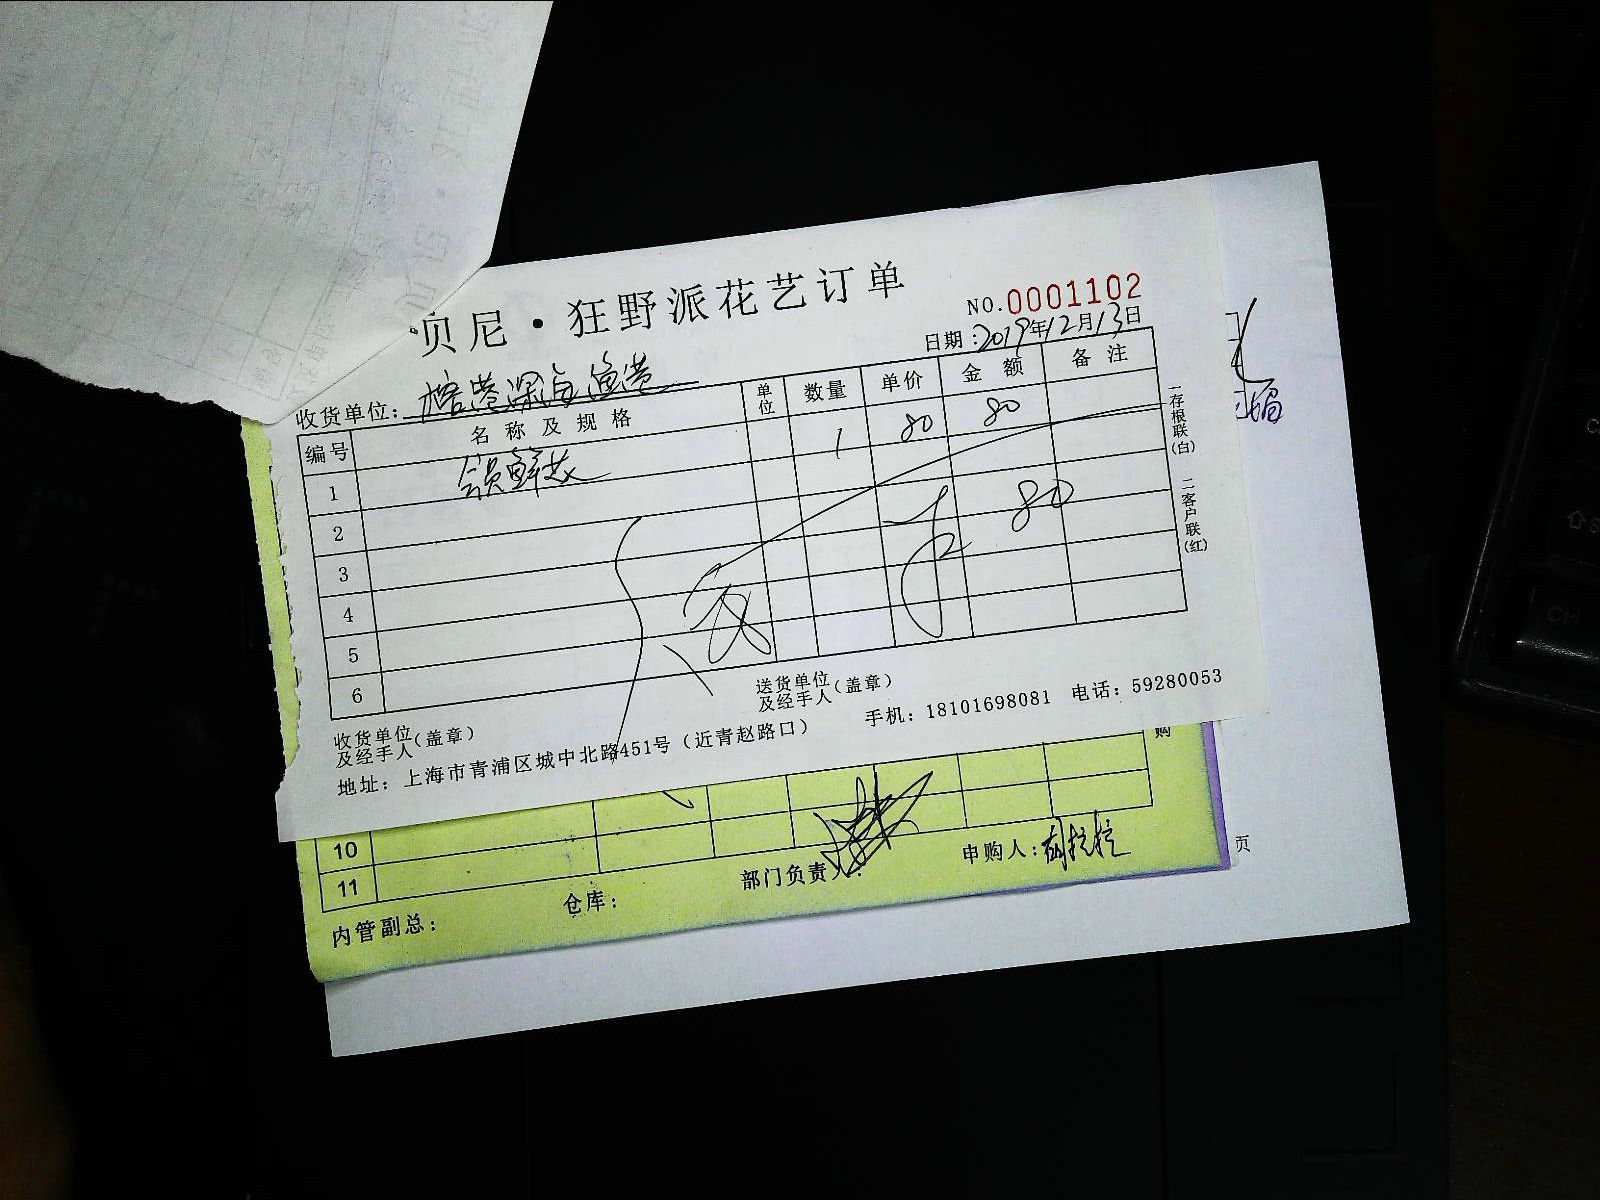 贝尼·狂野派花艺订单
NO.0001102
日期:2019年12月13日
收货单位: 榕港深海渔港
编号 名称及规格 单位 数量 单价 金额 备注
1 会员鲜花 1 80 80
2
3 80
4
5
6
一存根联(白) 二客户联(红)
收货单位及经手人(盖章)
送货单位及经手人(盖章)
地址: 上海市青浦区城中北路451号 (近青赵路口) 手机: 18101698081 电话: 59280053
购
10
11
内管副总:
仓库:
部门负责人:
申购人:
页